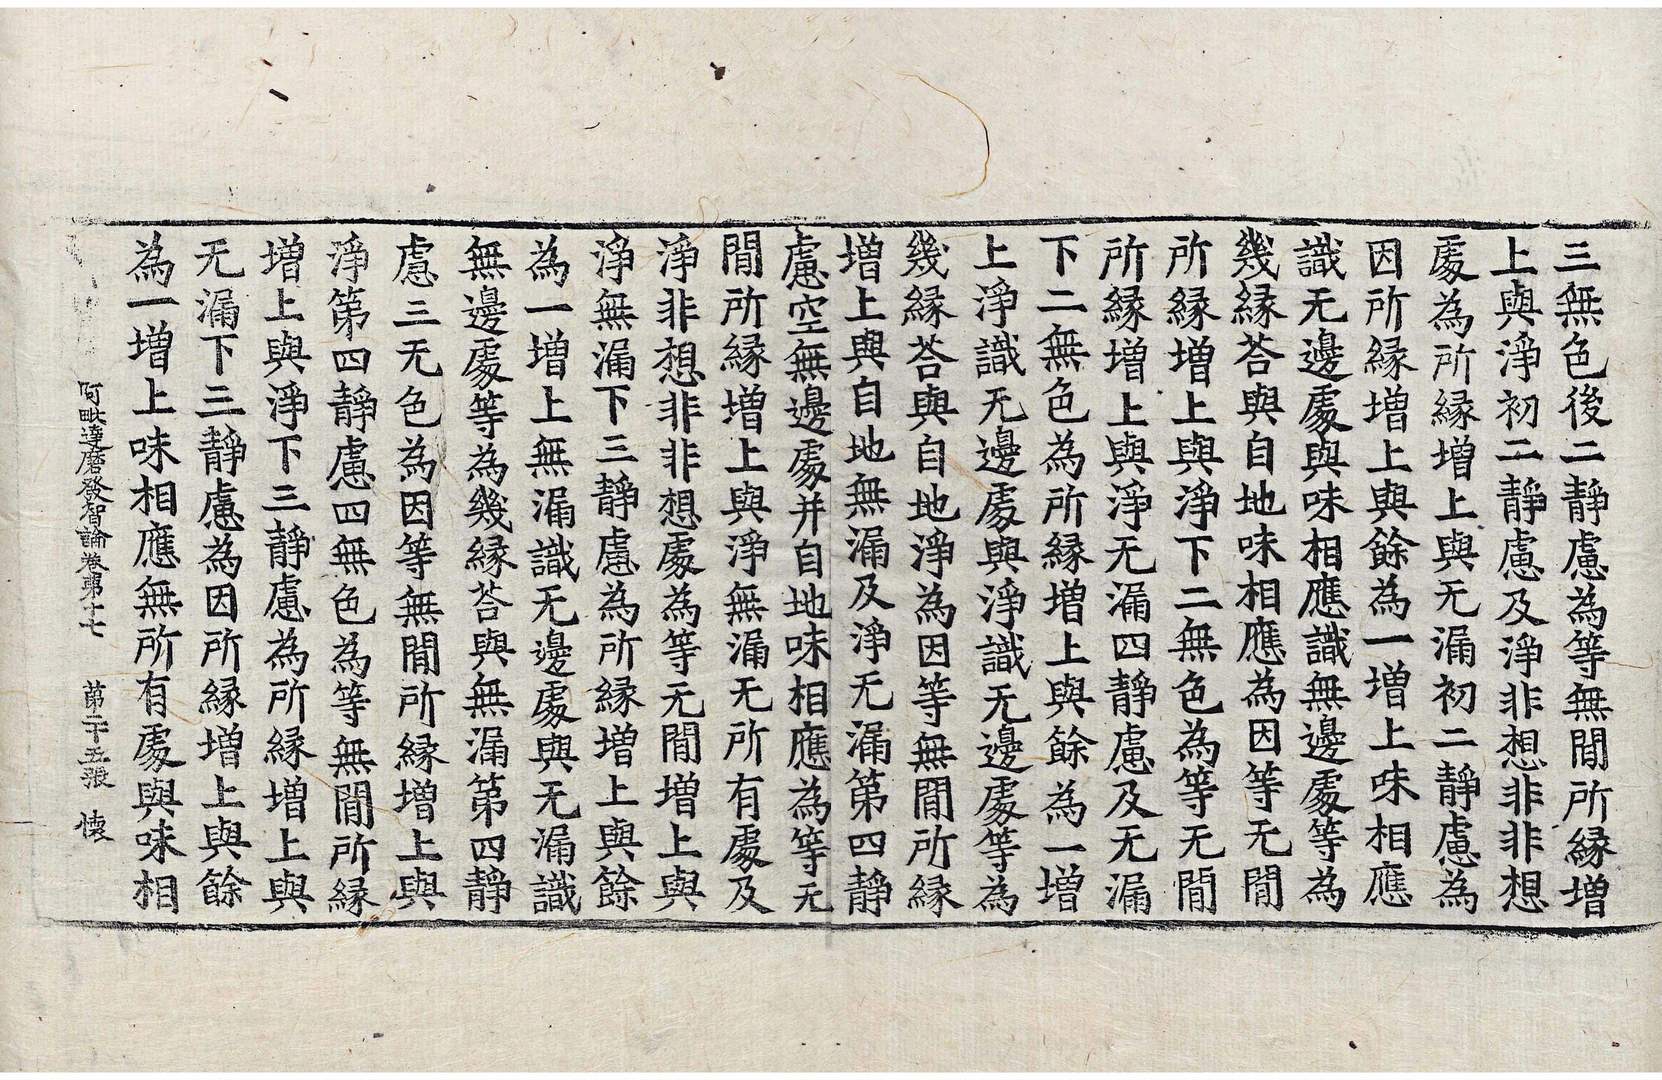 三無色後二靜慮為等無間所縁増
上與淨初二靜慮及淨非想非非想
處為所縁増上與无漏初二靜慮為
因所縁増上與餘為一増上味相應
識无邊處與味相應識無邊處等為
幾縁荅與自地味相應為因等无間
所縁増上與淨下二無色為等无間
所縁増上與淨无漏四靜慮及无漏
下二無色為所縁増上與餘為一増
上淨識无邊處與淨識无邊處等為
幾縁荅與自地淨為因等無間所縁
増上與自地無漏及淨无漏第四靜
慮空無邊處并自地味相應為等无
間所縁増上與淨無漏无所有處及
淨非想非非想處為等无間増上與
淨無漏下三靜慮為所縁増上與餘
為一増上無漏識无邊處與无漏識
無邊處等為幾縁荅與無漏第四靜
慮三无色為因等無間所縁増上與
淨第四靜慮四無色為等無間所縁
増上與淨下三靜慮為所縁増上與
无漏下三靜慮為因所縁増上與餘
為一増上味相應無所有處與味相
阿毗達磨發智論卷第十七 第二十五張 懐